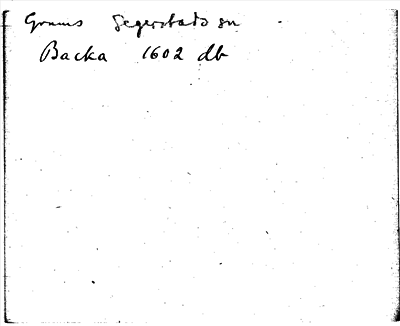 Grums Segerstads sn
Backa 1602 db